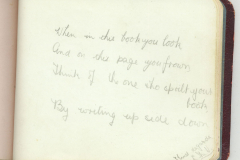 When in this book you look
And on this page you frown
Think of the one who spoilt your
book
By writing up side down